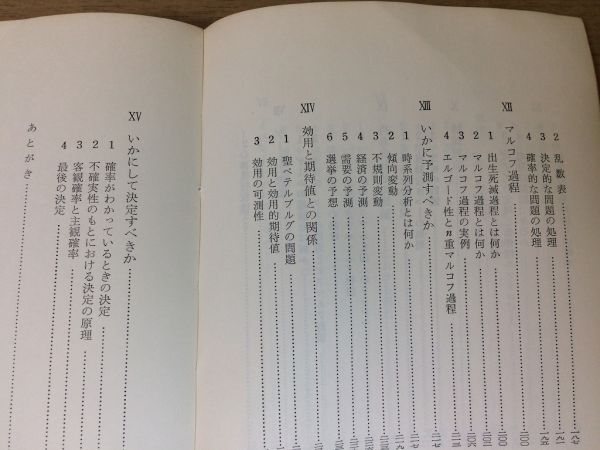 2 乱数表
3 決定的な問題の処理
4 確率的な問題の処理
XII マルコフ過程
1 出生死滅過程とは何か
2 マルコフ過程とは何か
3 マルコフ過程の実例
4 エルゴード性とn重マルコフ過程
XIII いかに予測すべきか
1 時系列分析とは何か
2 傾向変動
3 不規則変動
4 経済の予測
5 需要の予測
6 選挙の予想
XIV 効用と期待値との関係
1 聖ペテルブルグの問題
2 効用と効用的期待値
3 効用の可測性
XV いかにして決定すべきか
1 確率がわかっているときの決定
2 不確実性のもとにおける決定の原理
3 客観確率と主観確率
4 最後の決定
あとがき